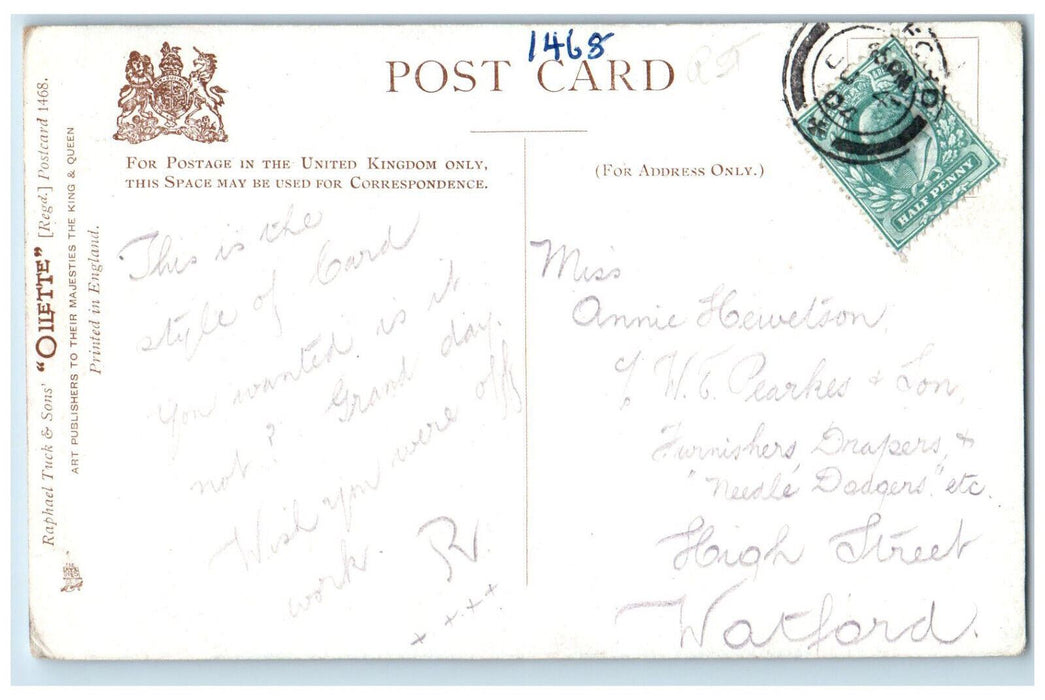 1468
POST CARD
FOR POSTAGE IN THE UNITED KINGDOM ONLY,
THIS SPACE MAY BE USED FOR CORRESPONDENCE.
(FOR ADDRESS ONLY.)
HALF PENNY
Raphael Tuck & Sons' "OILETTE" [Regd.] Postcard 1468.
ART PUBLISHERS TO THEIR MAJESTIES THE KING & QUEEN
Printed in England.
This is the
style of Card
you wanted is it
not? Grand day.
Wish you were off
work. R.
++++
Miss
Annie Hewetson,
c/o W.E. Pearkes & Son,
Furnishers Drapers, &
"Needle Dodgers" etc.
High Street
Watford.